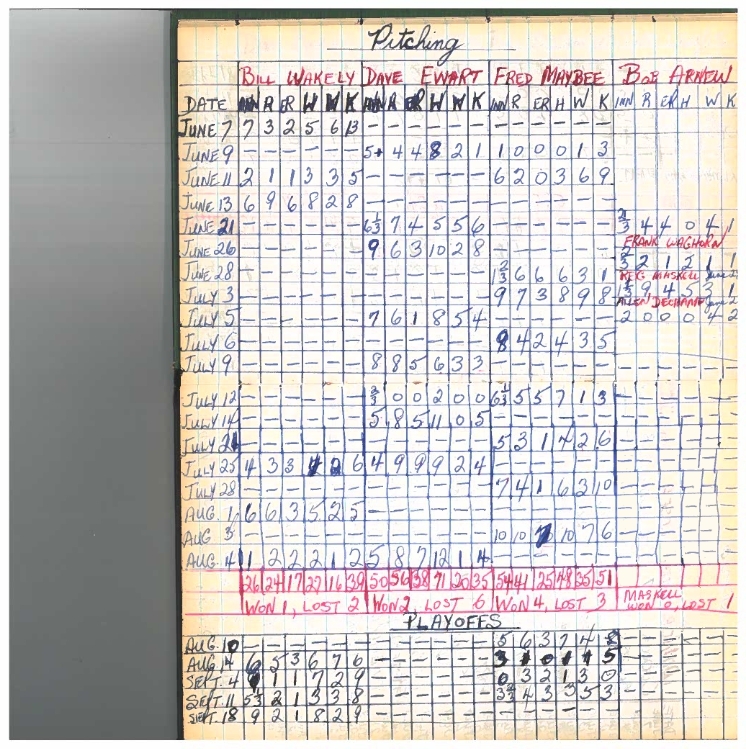 Pitching
BILL WAKELY DAVE EWART FRED MAYBEE BOB ARNEW
DATE INN R ER W W K INN R ER W W K INN R ER H W K INN R ER H W K
JUNE 7 7 3 2 5 6 13 - - - - - - - - - - - -
JUNE 9 - - - - - - 5+ 4 4 8 2 1 1 0 0 0 1 3
JUNE 11 2 1 1 3 3 5 - - - - - - 6 2 0 3 6 9
JUNE 13 6 9 6 8 2 8 - - - - - - - - - - - -
JUNE 21 - - - - - - 6⅓ 7 4 5 5 6 - - - - - - ⅔ 4 4 0 4 1
FRANK WAGHORN
JUNE 26 - - - - - - 9 6 3 10 2 8 - - - - - - ⅔ 2 1 2 1 1
JUNE 28 - - - - - - - - - - - - 1⅔ 6 6 6 3 1 REG MASKELL
JULY 3 - - - - - - - - - - - - 9 7 3 8 9 8 1⅓ 9 4 5 3 1
ALLEN DECHAMP
JULY 5 - - - - - - 7 6 1 8 5 4 - - - - - - 2 0 0 0 4 2
JULY 6 - - - - - - - - - - - - 8 4 2 4 3 5
JULY 9 - - - - - - 8 8 5 6 3 3 - - - - - - - - - - - -
JULY 12 - - - - - - ⅔ 0 0 2 0 0 6⅓ 5 5 7 1 3
JULY 14 - - - - - - 5 8 5 11 0 5 - - - - - -
JULY 21 - - - - - - - - - - - - 5 3 1 4 2 6
JULY 25 4 3 3 4 2 6 4 9 9 9 2 4 - - - - - -
JULY 28 - - - - - - - - - - - - 7 4 1 6 3 10
AUG. 1 6 6 3 5 2 5 - - - - - - - - - - - -
AUG 3 - - - - - - - - - - - - 10 10 7 10 7 6
AUG. 4 1 2 2 2 1 2 5 8 7 12 1 4 - - - - - -
26 24 17 27 16 39 50 56 38 71 20 35 54 41 25 48 35 51 MASKELL
WON 1, LOST 2 WON 2, LOST 6 WON 4, LOST 3 WON 0, LOST 1
PLAYOFFS
AUG. 10 - - - - - - - - - - - - 5 6 3 7 4 8
AUG 14 6 5 3 6 7 6 - - - - - - 3 1 0 1 1 5
SEPT. 4 9 1 1 7 2 9 - - - - - - 0 3 2 1 3 0
SEPT. 11 5⅓ 2 1 3 3 8 - - - - - - 3⅔ 4 3 3 5 3
SEPT. 18 9 2 1 8 2 9 - - - - - - - - - - - -